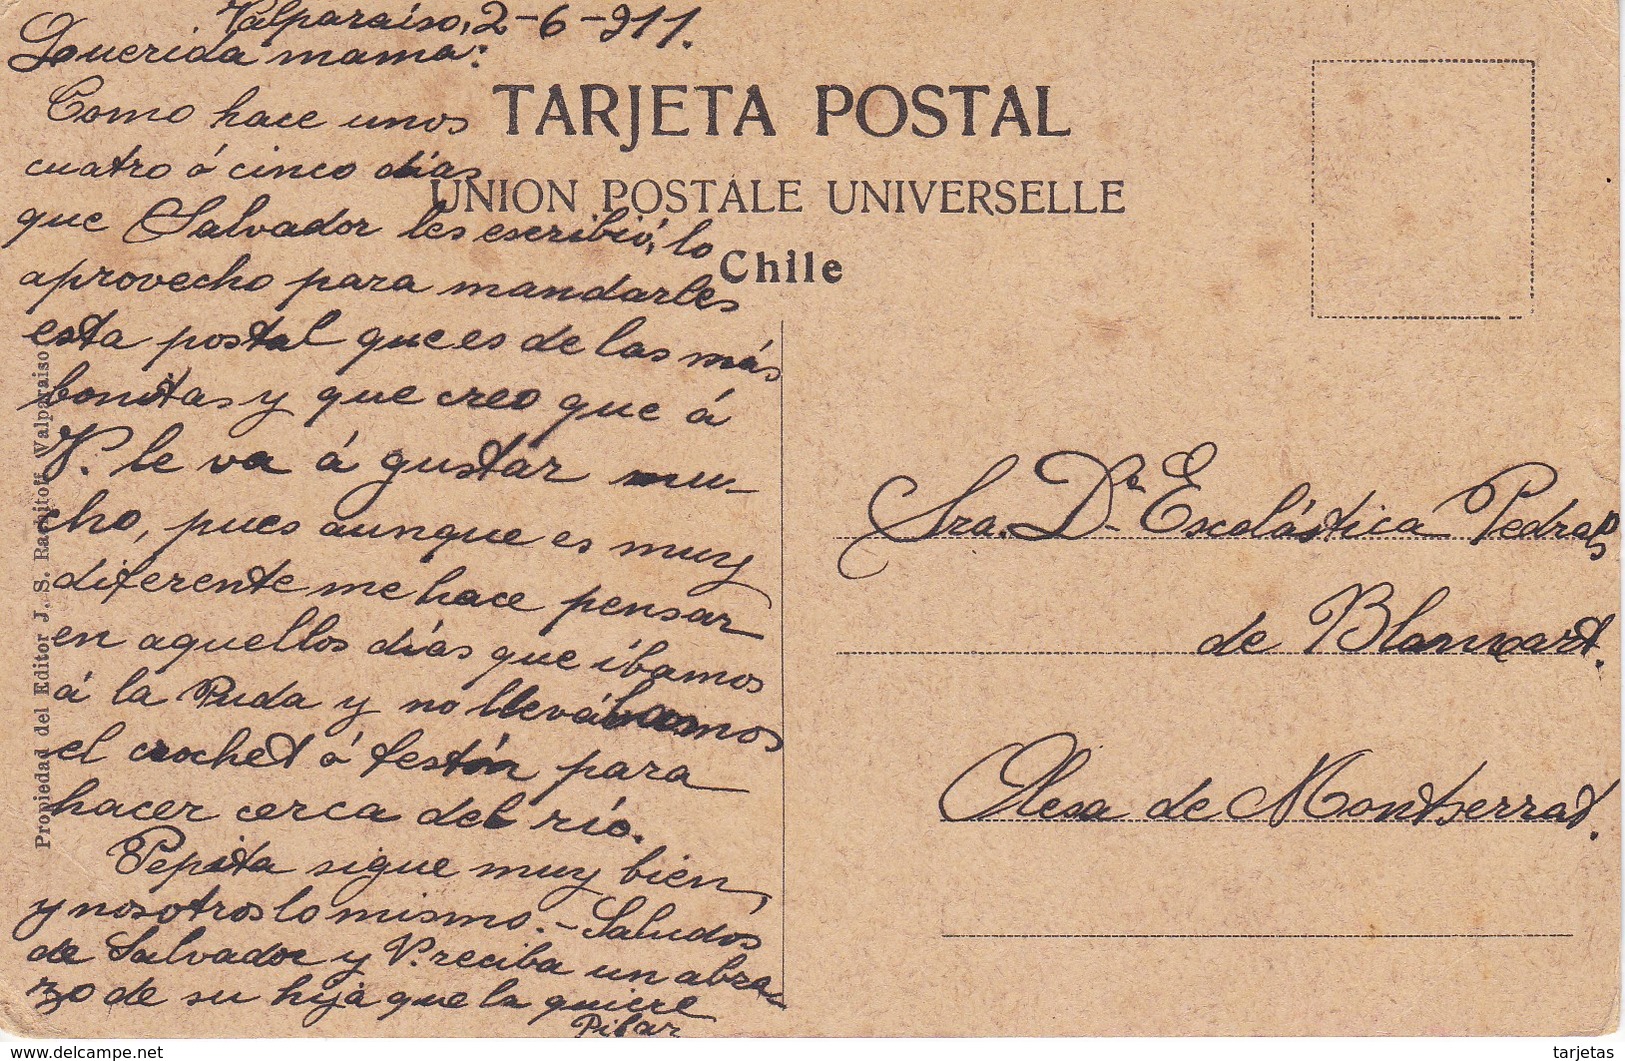 Valparaíso, 2-6-911.
Querida mamá:
Como hace unos
cuatro ó cinco días
que Salvador les escribió, lo
aprovecho para mandarles
esta postal que es de las más
bonitas y que creo que á
V. le va á gustar mu-
cho, pues aunque es muy
diferente me hace pensar
en aquellos días que íbamos
á la Puda y no llevábamos
el crochet ó festón para
hacer cerca del río.
Pepita sigue muy bien,
y nosotros lo mismo.- Saludos
de Salvador y V. reciba un abra-
zo de su hija que la quiere
Pilar
TARJETA POSTAL
UNION POSTALE UNIVERSELLE
Chile
Sra. Dª Escolástica Pedrals
de Blanxart.
Olesa de Montserrat.
Propiedad del Editor J. S. Rachitoff Valparaiso
https://www.delcampe.net
tarjetas